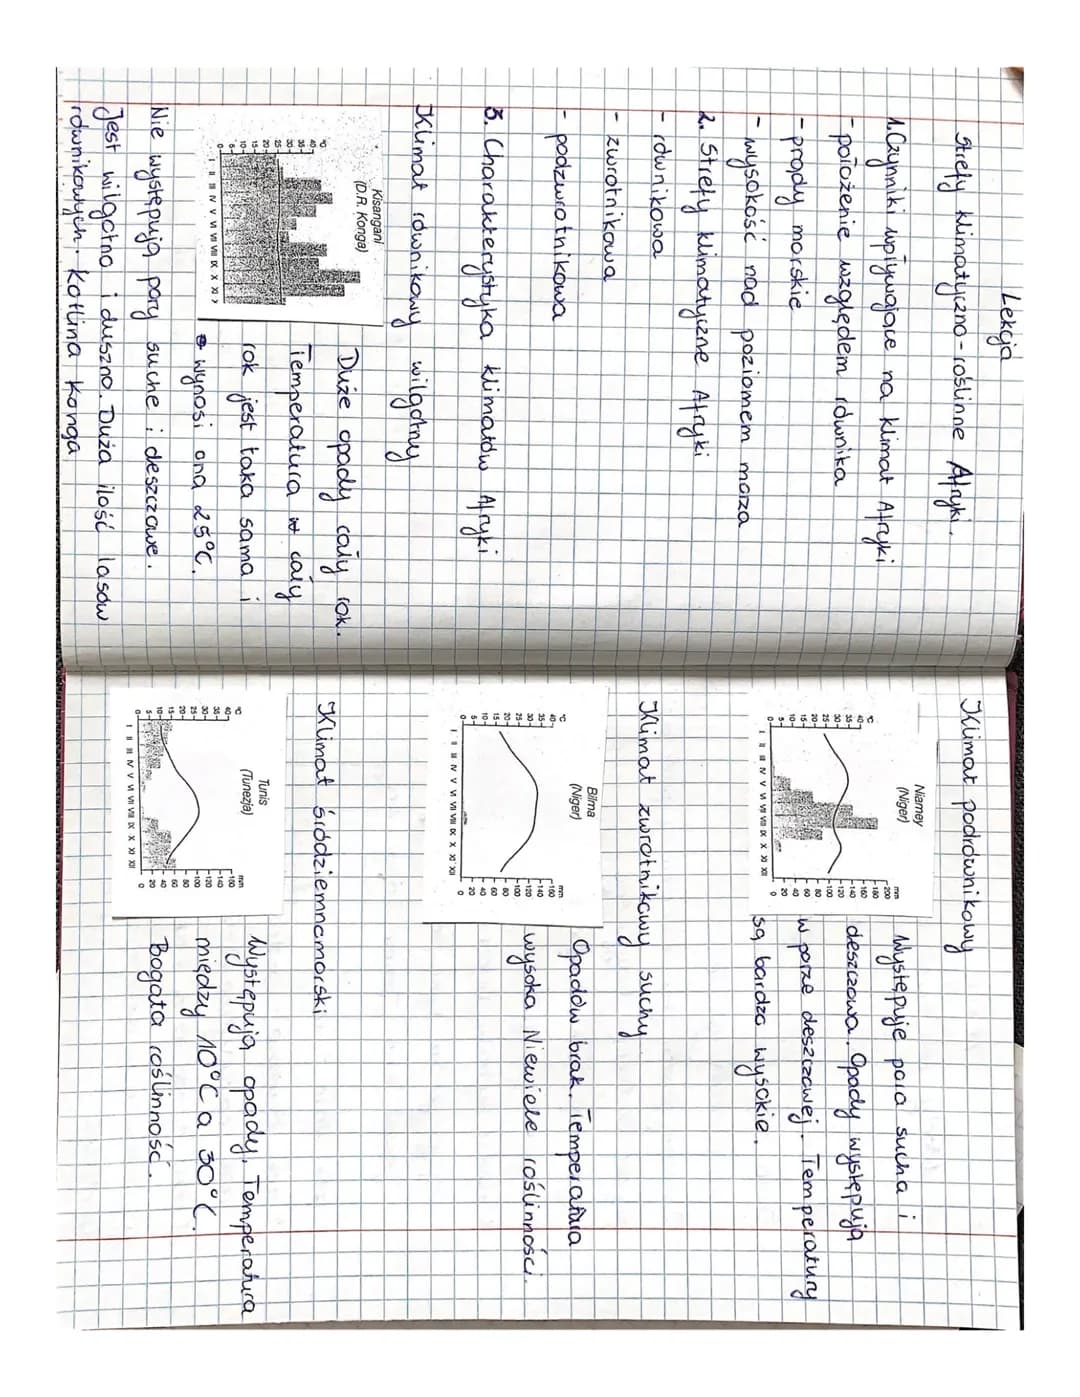 Lekcja
Strefy klimatyczno-roślinne Afryki.
1. Czynniki wpływające na klimat Afryki
- położenie względem równika
- prądy morskie
- wysokość nad poziomem morza
2. Strefy klimatyczne Afryki
- równikowa
- zwrotnikowa
- podzwrotnikowa
3. Charakterystyka klimatów Afryki
Klimat równikowy wilgotny
Kisangani
(D.R. Konga)
°C
40
35
30
25
20
15
10
5
0
I II III IV V VI VII VIII IX X XI
Duże opady cały rok.
Temperatura cały
rok jest taka sama i
wynosi ona 25°C.
Nie występują pory suche i deszczowe.
Jest wilgotno i duszno. Duża ilość lasów
równikowych. Kotlina Konga
Klimat podrównikowy
Niamey
(Niger)
°C
40
35
30
25
20
15
10
5
0
mm
200
180
160
140
120
100
80
60
40
20
0
I II III IV V VI VII VIII IX X XI XII
Występuje pora sucha i
deszczowa. Opady występują
w porze deszczowej. Temperatury
są bardzo wysokie.
Klimat zwrotnikowy suchy
Bilma
(Niger)
°C
40
35
30
25
20
15
10
5
0
mm
160
140
120
100
80
60
40
20
0
I II III IV V VI VII VIII IX X XI XII
Opadów brak. Temperatura
wysoka Niewiele roślinności.
Klimat śródziemnomorski
Tunis
(Tunezja)
°C
40
35
30
25
20
15
10
5
0
mm
160
140
120
100
80
60
40
20
0
I II III IV V VI VII VIII IX X XI XII
Występują opady. Temperatura
między 10°C a 30°C.
Bogata roślinność.